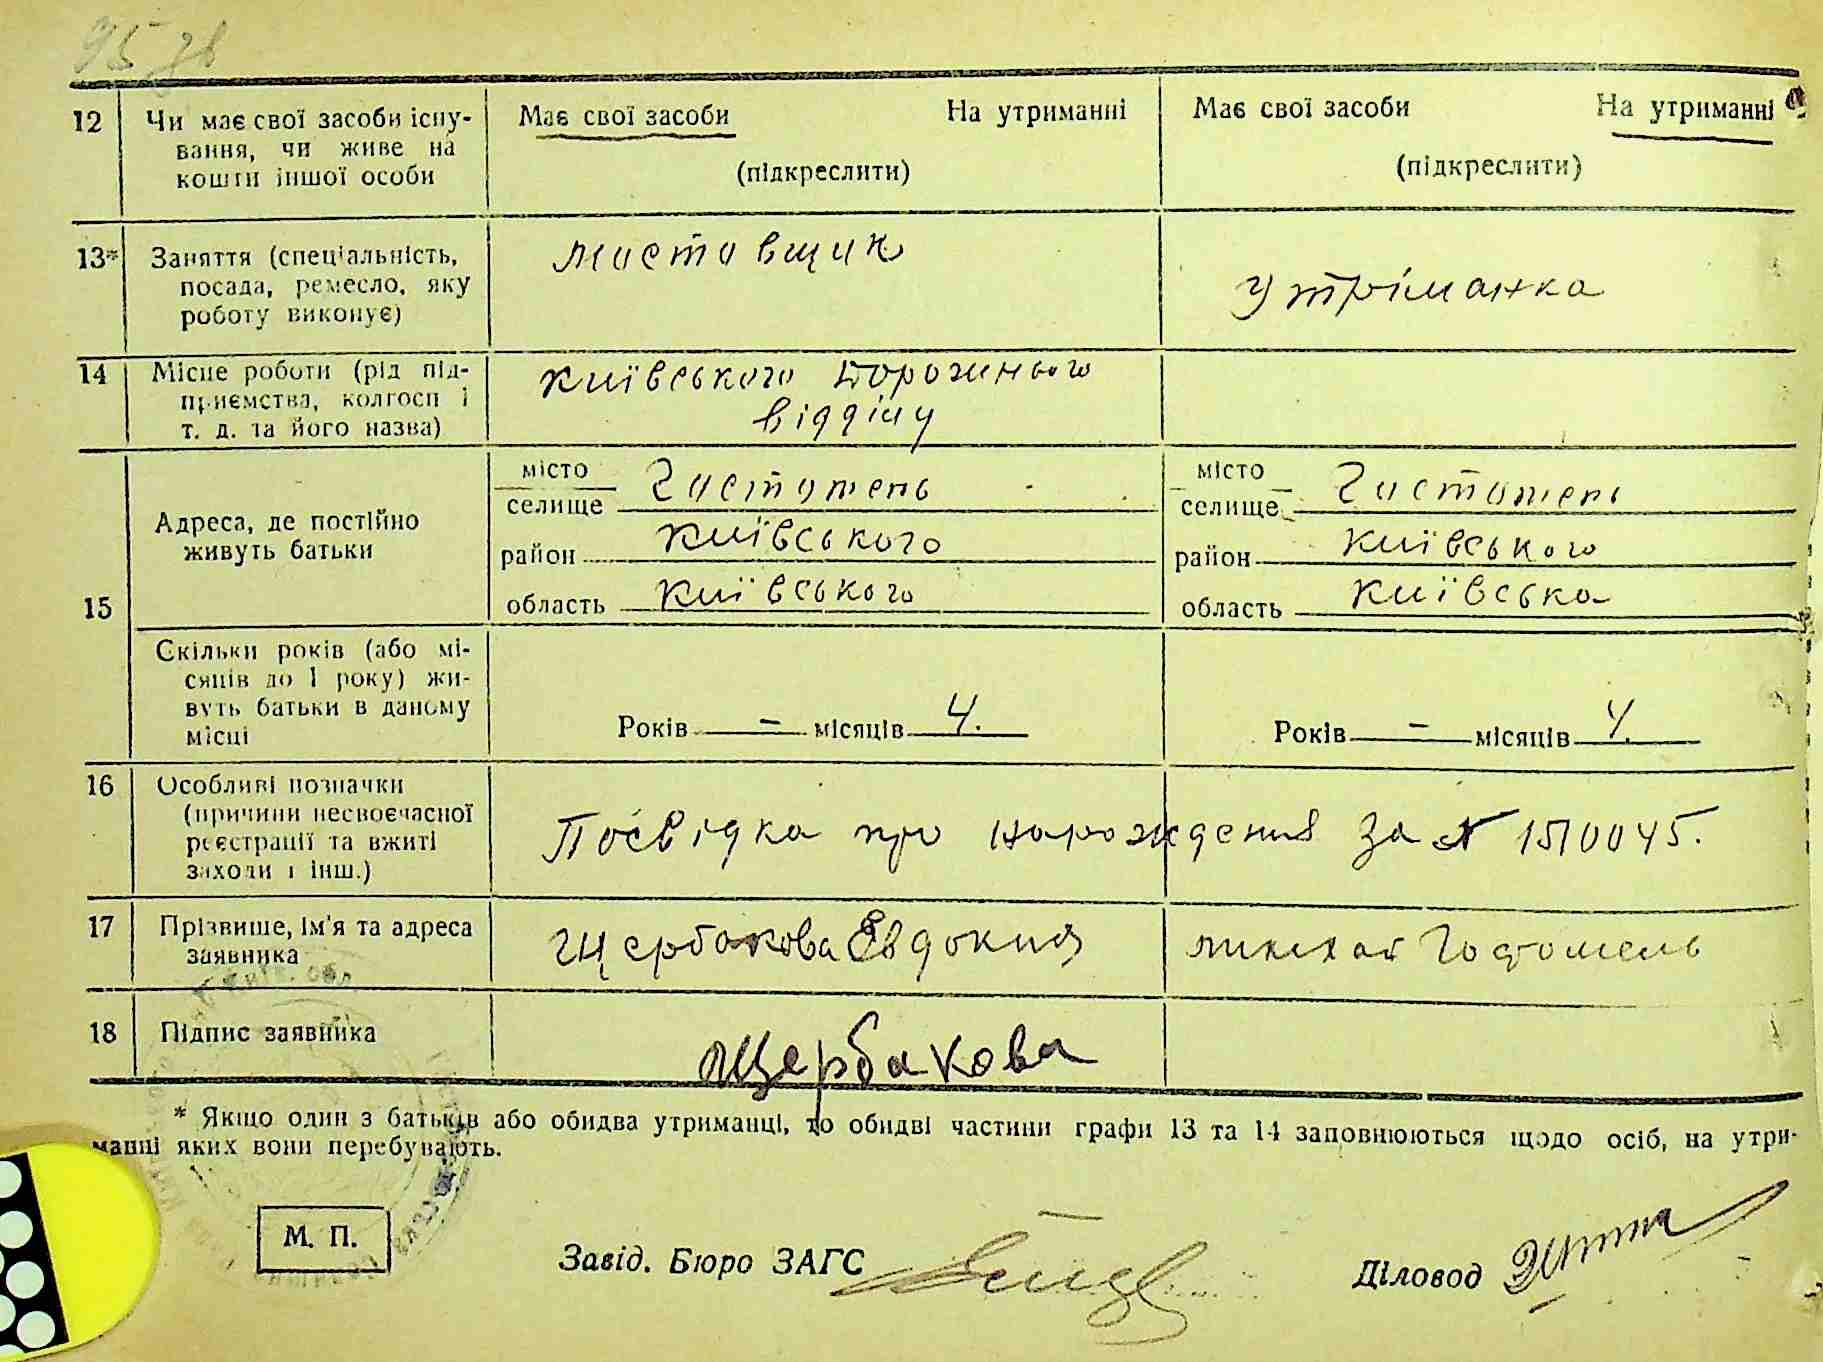 95 зв
12 Чи має свої засоби існу-
вання, чи живе на
кошти іншої особи
Має свої засоби На утриманні
(підкреслити)
Має свої засоби На утриманні
(підкреслити)
13* Заняття (спеціальність,
посада, ремесло, яку
роботу виконує)
мостовщик
Утріманка
14 Місце роботи (рід під-
приємства, колгосп і
т. д. та його назва)
Київського дорожнього
відділу
15 Адреса, де постійно
живуть батьки
місто
селище Гостомель
район Київського
область Київського
місто
селище Гостомель
район Київського
область Київська
Скільки років (або мі-
сяців до 1 року) жи-
вуть батьки в даному
місці
Років – місяців 4.
Років – місяців 4.
16 Особливі позначки
(причини несвоєчасної
реєстрації та вжиті
заходи і інш.)
Посвідка про нарождения за № 1510045.
17 Прізвище, ім'я та адреса
заявника
Щербакова Евдокия Гостомель
18 Підпис заявника
Щербакова
* Якщо один з батьків або обидва утриманці, то обидві частини графи 13 та 14 заповнюються щодо осіб, на утри-
манні яких вони перебувають.
М. П.
Завід. Бюро ЗАГС
Діловод